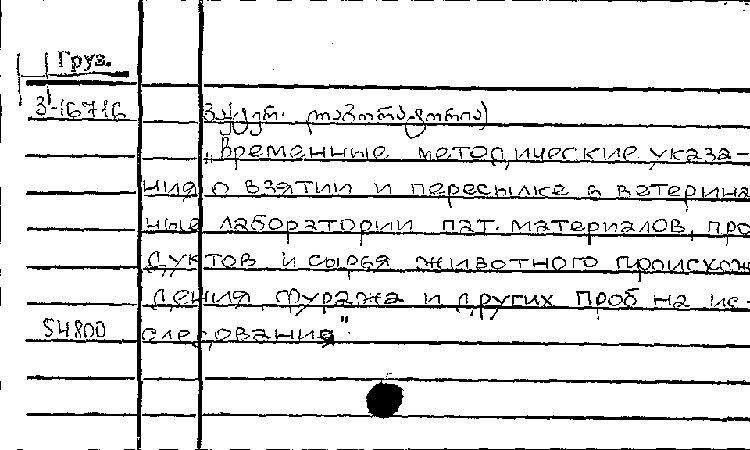 Груз.
3-16716 ვეტერ. ლაბორატორია)
„Временные методические указа-
ния о взятии и пересылке в ветерина
ные лаборатории пат. материалов, про
дуктов и сырья животного происхож
дения, фуража и других проб на ис-
54800 следования"